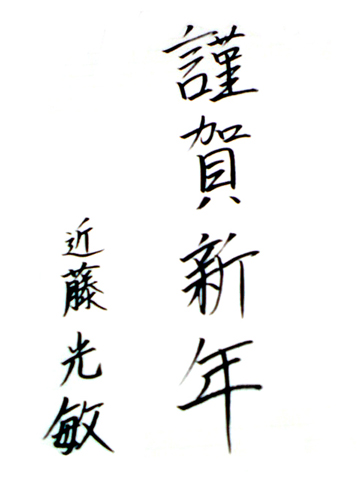 謹賀新年
近藤光敏